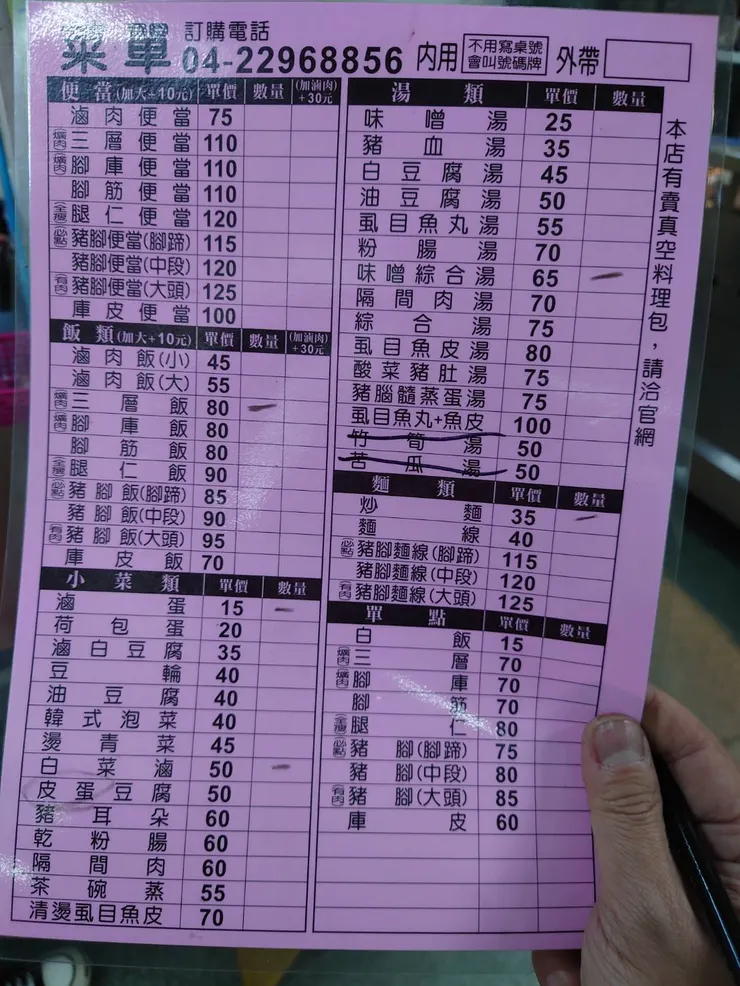 菜單 訂購電話 04-22968856 內用 不用寫桌號 會叫號碼牌 外帶
便當(加大+10元) 單價 數量 (加滷肉)+30元
滷肉便當 75
(爌肉)三層便當 110
(爌肉)腳庫便當 110
腳筋便當 110
(全瘦)腿仁便當 120
(必點)豬腳便當(腳蹄) 115
豬腳便當(中段) 120
(有肉)豬腳便當(大頭) 125
庫皮便當 100
飯類(加大+10元) 單價 數量 (加滷肉)+30元
滷肉飯(小) 45
滷肉飯(大) 55
(爌肉)三層飯 80
(爌肉)腳庫飯 80
腳筋飯 80
(全瘦)腿仁飯 90
(必點)豬腳飯(腳蹄) 85
豬腳飯(中段) 90
(有肉)豬腳飯(大頭) 95
庫皮飯 70
小菜類 單價 數量
滷蛋 15
荷包蛋 20
滷白豆腐 35
豆輪 40
油豆腐 40
韓式泡菜 40
燙青菜 45
白菜滷 50
皮蛋豆腐 50
豬耳朵 60
乾粉腸 60
隔間肉 60
茶碗蒸 55
清燙虱目魚皮 70
湯類 單價 數量
味噌湯 25
豬血湯 35
白豆腐湯 45
油豆腐湯 50
虱目魚丸湯 55
粉腸湯 70
味噌綜合湯 65
隔間肉湯 70
綜合湯 75
虱目魚皮湯 80
酸菜豬肚湯 75
豬腦髓蒸蛋湯 75
虱目魚丸+魚皮 100
竹筍湯 50
苦瓜湯 50
麵類 單價 數量
炒麵 35
麵線 40
(必點)豬腳麵線(腳蹄) 115
豬腳麵線(中段) 120
(有肉)豬腳麵線(大頭) 125
單點 單價 數量
白飯 15
(爌肉)三層 70
(爌肉)腳庫 70
腳筋 70
(全瘦)腿仁 80
(必點)豬腳(腳蹄) 75
豬腳(中段) 80
(有肉)豬腳(大頭) 85
庫皮 60
本店有賣真空料理包，請洽官網